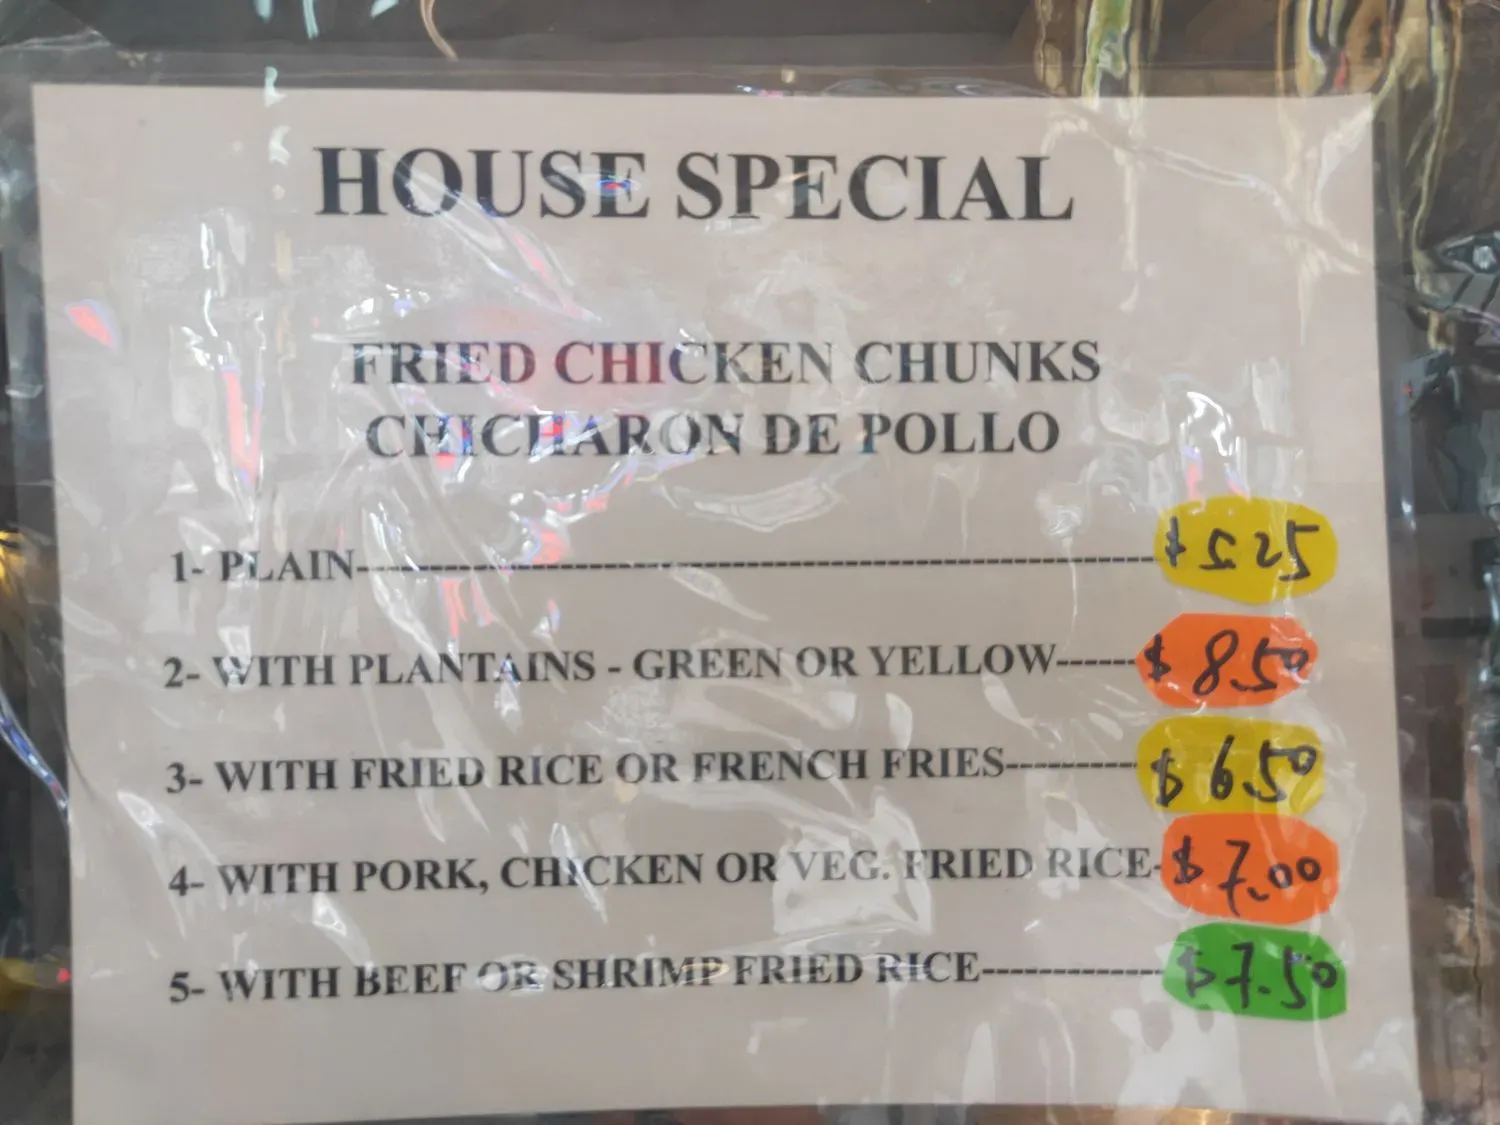 HOUSE SPECIAL
FRIED CHICKEN CHUNKS
CHICHARON DE POLLO
1- PLAIN------------------------------------------------------------$ 5.25
2- WITH PLANTAINS - GREEN OR YELLOW------$ 8.50
3- WITH FRIED RICE OR FRENCH FRIES----------$ 6.50
4- WITH PORK, CHICKEN OR VEG. FRIED RICE-$ 7.00
5- WITH BEEF OR SHRIMP FRIED RICE-------------$ 7.50